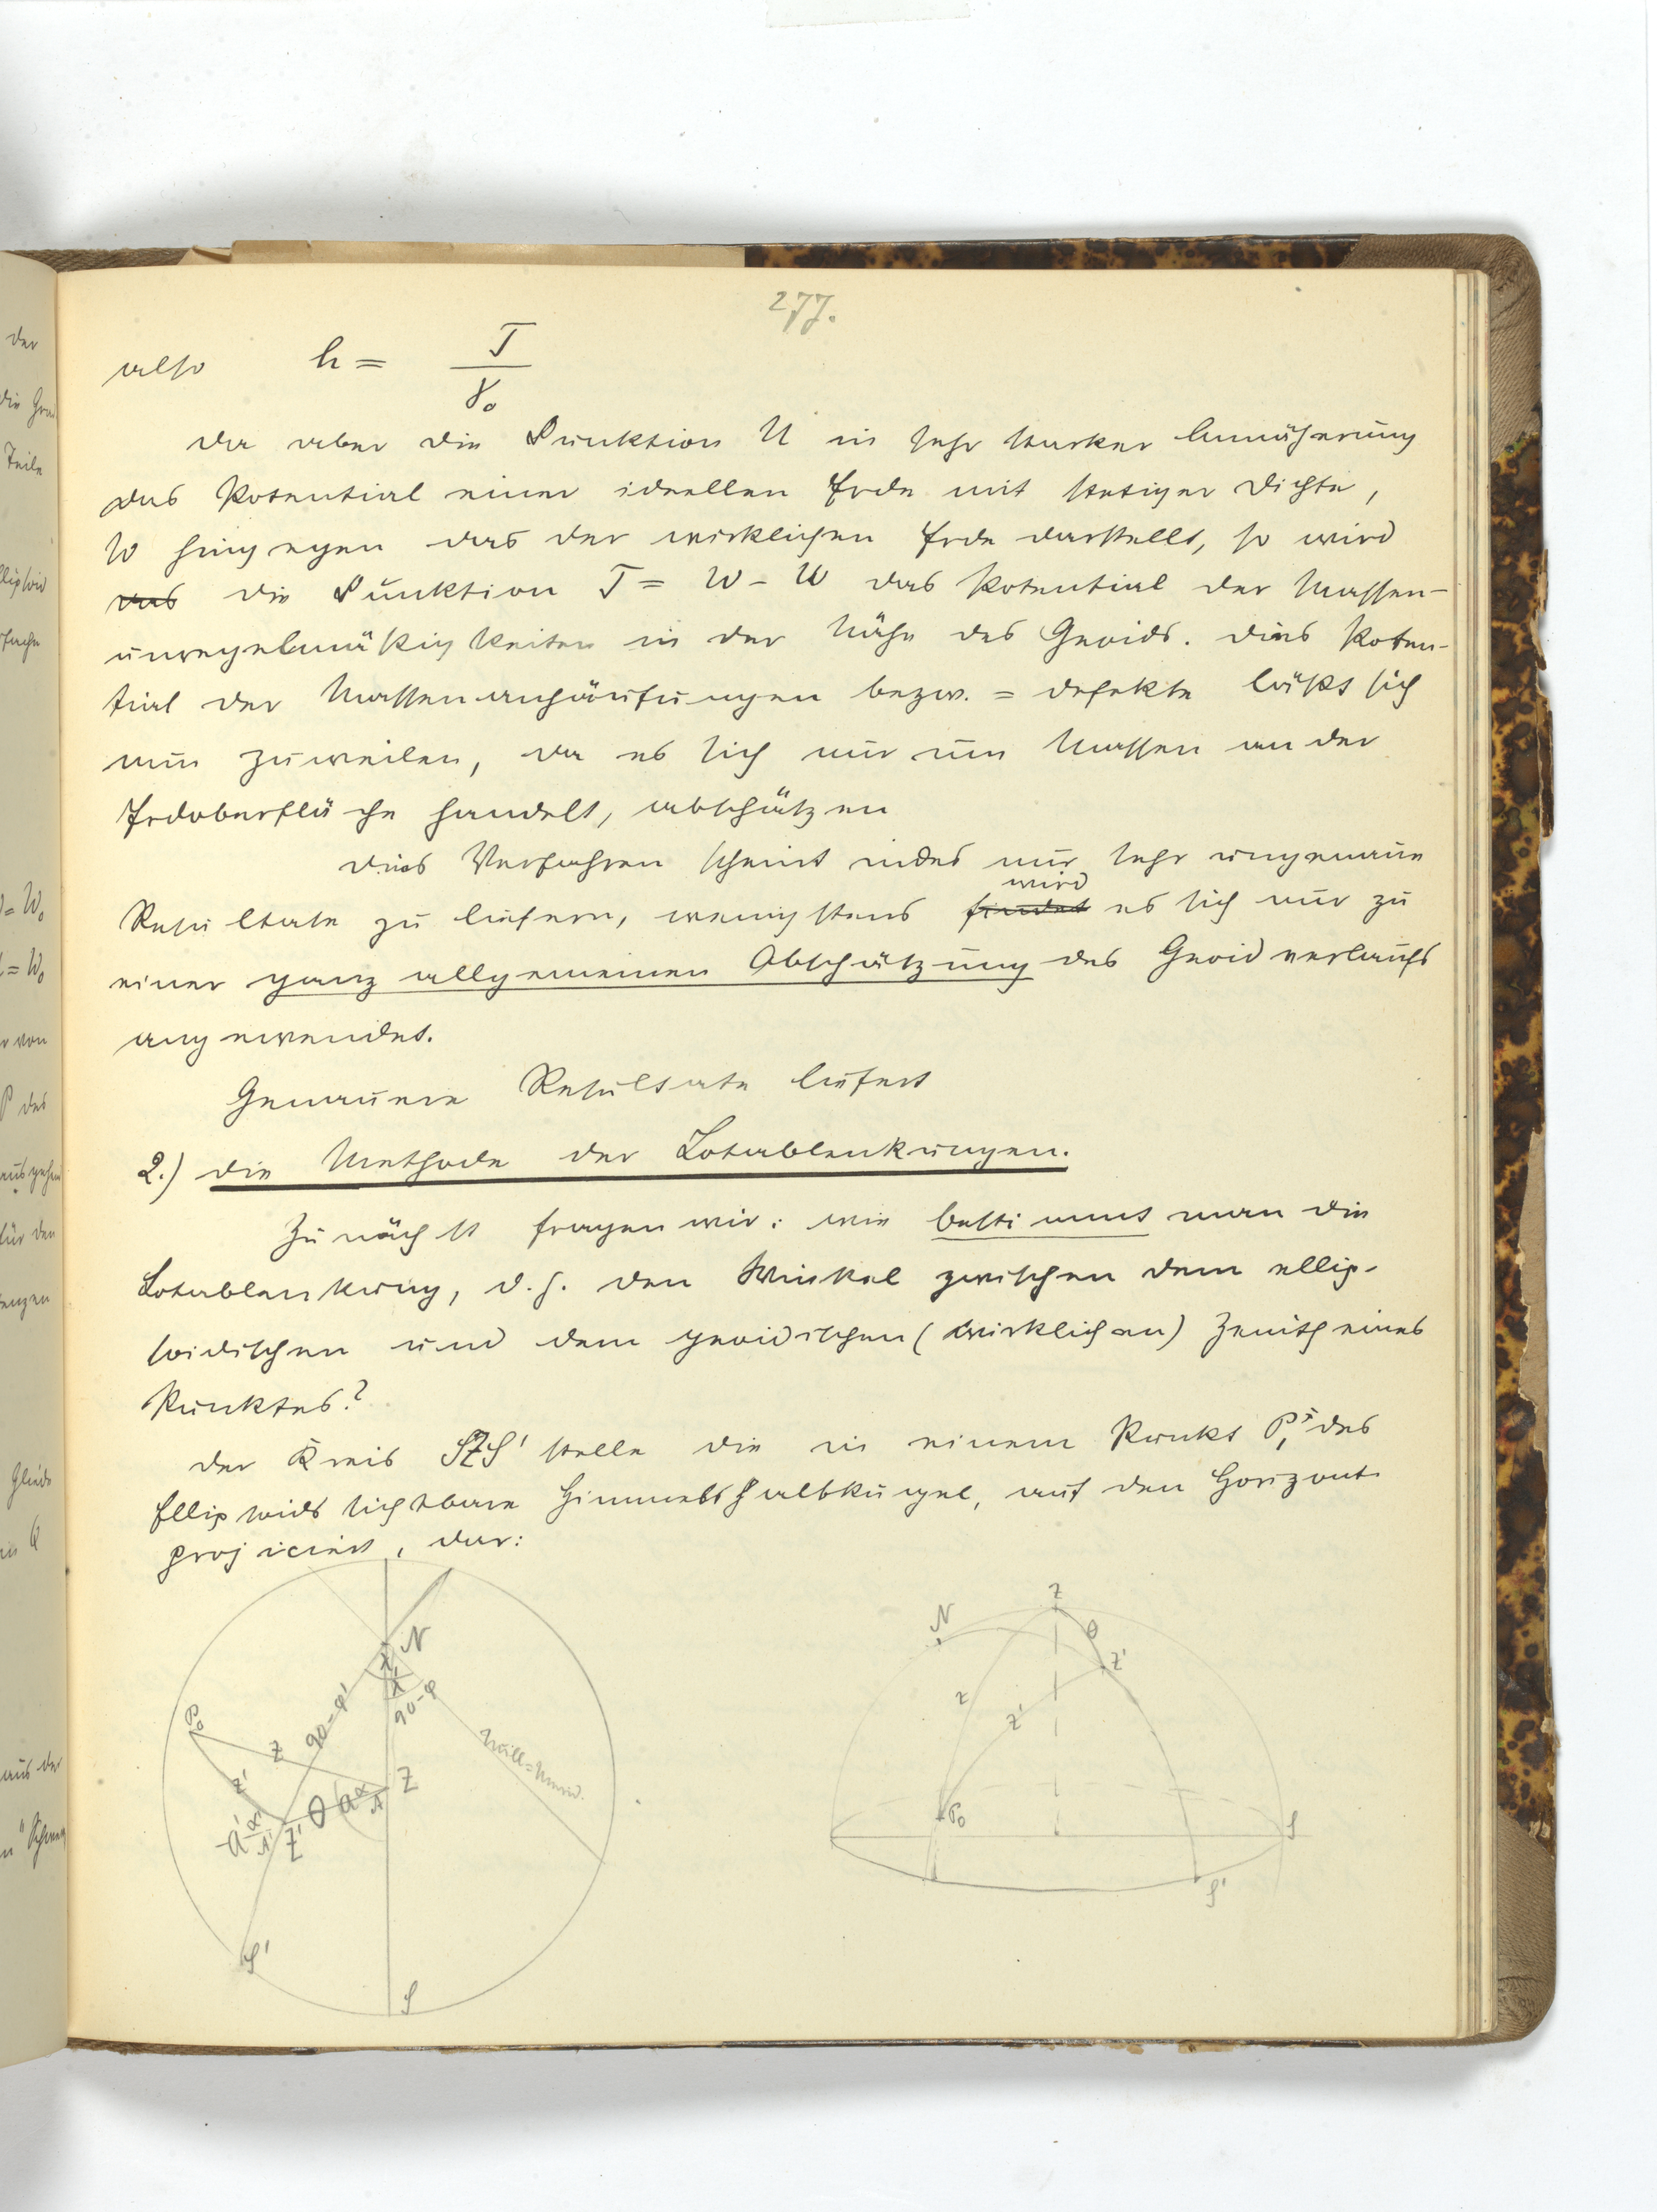 277.
also h = T / γ₀
Da aber die Funktion U in sehr starker Annäherung
das Potential einer ideellen Erde mit stetiger Dichte,
W hingegen das der wirklichen Erde darstellt, so wird
das die Funktion T = W - U das Potential der Massen-
unregelmäßigkeiten in der Nähe des Geoids. Dies Poten-
tial der Massenanhäufungen bezw. = defekte läßt sich
nun zuweilen, da es sich nur um Massen an der
Erdoberfläche handelt, abschätzen
Dies Verfahren scheint indes nur sehr ungenaue
wird
Resultate zu liefern, wenigstens findet es sich nur zu
einer ganz allgemeinen Abschätzung des Geoidverlaufs
angewendet.
Genauere Resultate liefert
2.) die Methode der Lotablenkungen.
Zunächst fragen wir: wie bestimmt man die
Lotablenkung, d. h. den Winkel zwischen dem ellip-
soidischen und dem geoidischen (wirklichen) Zenith eines
Punktes?
Der Kreis SZS' stelle die in einem Punkt P, des
Ellipsoids sichtbare Himmelshalbkugel, auf den Horizont
projiciert, dar:
N
λ
λ'
90-φ'
90-φ
P₀
z
z'
Null=Merid.
Z
θ
a α
A
a' α'
A'
Z'
S'
S
Z
N
θ
Z'
z
z'
P₀
S
S'
der
die
Teile
= W₀
= W₀
r von
P des
ausgehen
für den
in Q
aus der